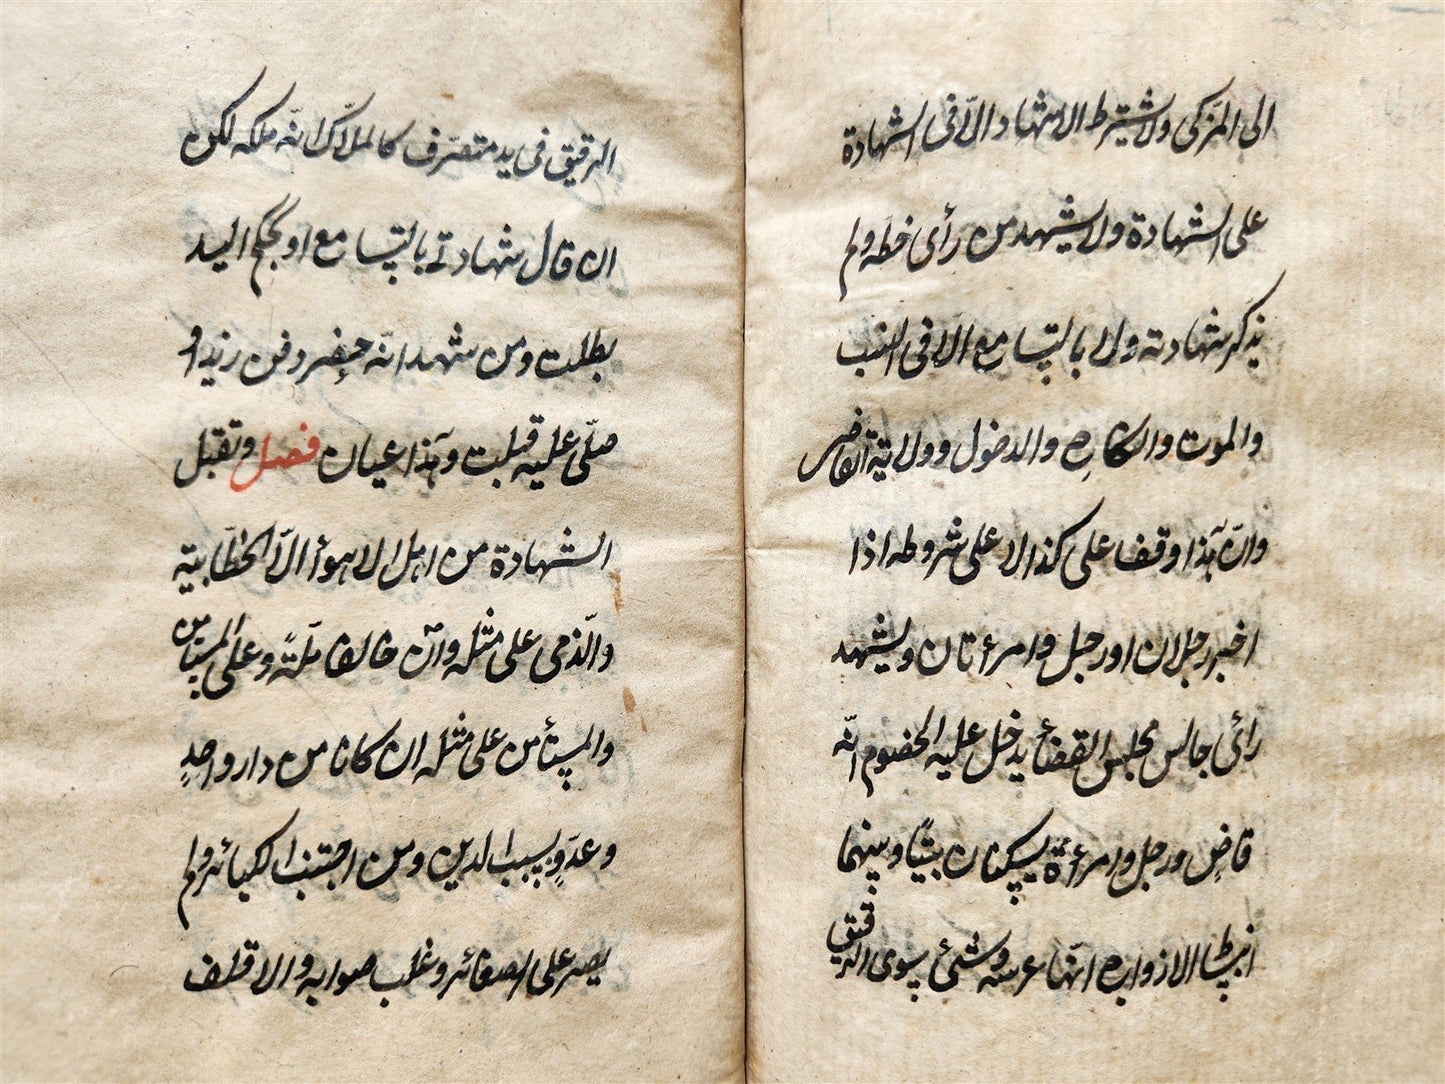 الى المزكى ولا يشترط الاشهاد الّا فى الشهادة
على الشهادة ولا يشهد من رأى خطه ولم
يذكر شهادته ولا بالتسامع الّا فى النسب
والموت والنكاح والدخول وولاية القاضى
وانّ هذا وقف على كذا لا على شروطه اذا
اخبر رجلان او رجل وامرأتان ويشهد
رائى جالس مجلس القضاء يدخل عليه الخصوم انّه
قاضٍ ورجل وامرأة يسكنان بيتًا وبينهما
انبساط الازواج انّها عرسه وشئ سوى الرقيق
الرقيق فى يد متصرّف كالملّاك انّه ملكه لكن
ان قال شهادتى بالتسامع او بحكم اليد
بطلت ومن شهد انّه حضر دفن زيد او
صلّى عليه قبلت وهذا عيان فصل وتقبل
الشهادة من اهل الاهوأ الّا الخطّابية
والذّمى على مثله وان خالفا ملّةً وعلى المستأمن
والمستأمن على مثله ان كانا من دار واحدٍ
وعدوٍّ بسبب الدين ومن اجتنب الكبائر ولم
يصر على الصغائر وغلب صوابه والاقلف